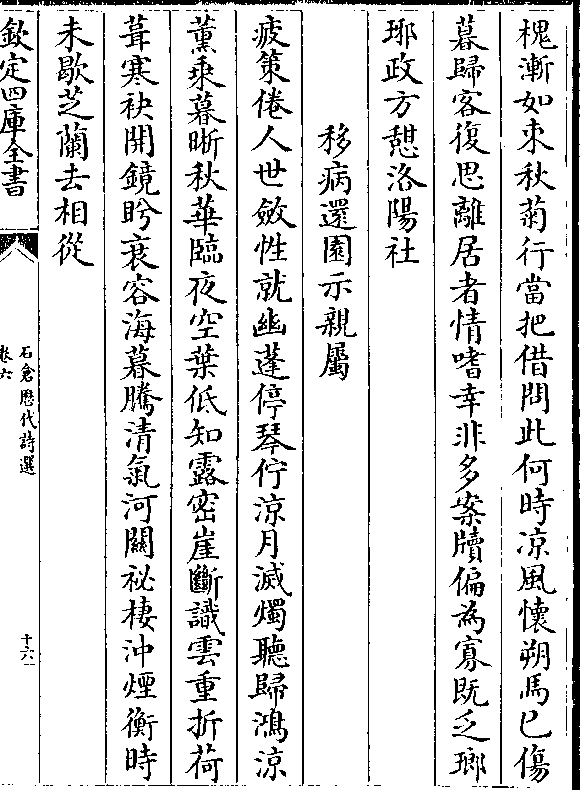 槐漸如束秋菊行當把借問此何時凉風懷朔馬已傷
暮歸客復思離居者情嗜幸非多案牘偏為寡既乏瑯
琊政方憇洛陽社
移病還園示親屬
疲策倦人世斂性就幽蓬停琴佇涼月滅燭聽歸鴻涼
薰乘暮晰秋華臨夜空葉低知露密崖斷識雲重折荷
葺寒袂開鏡盻衰容海暮騰清氣河關祕棲沖煙衡時
未歇芝蘭去相從
欽定四庫全書
石倉歷代詩選
卷六
十六